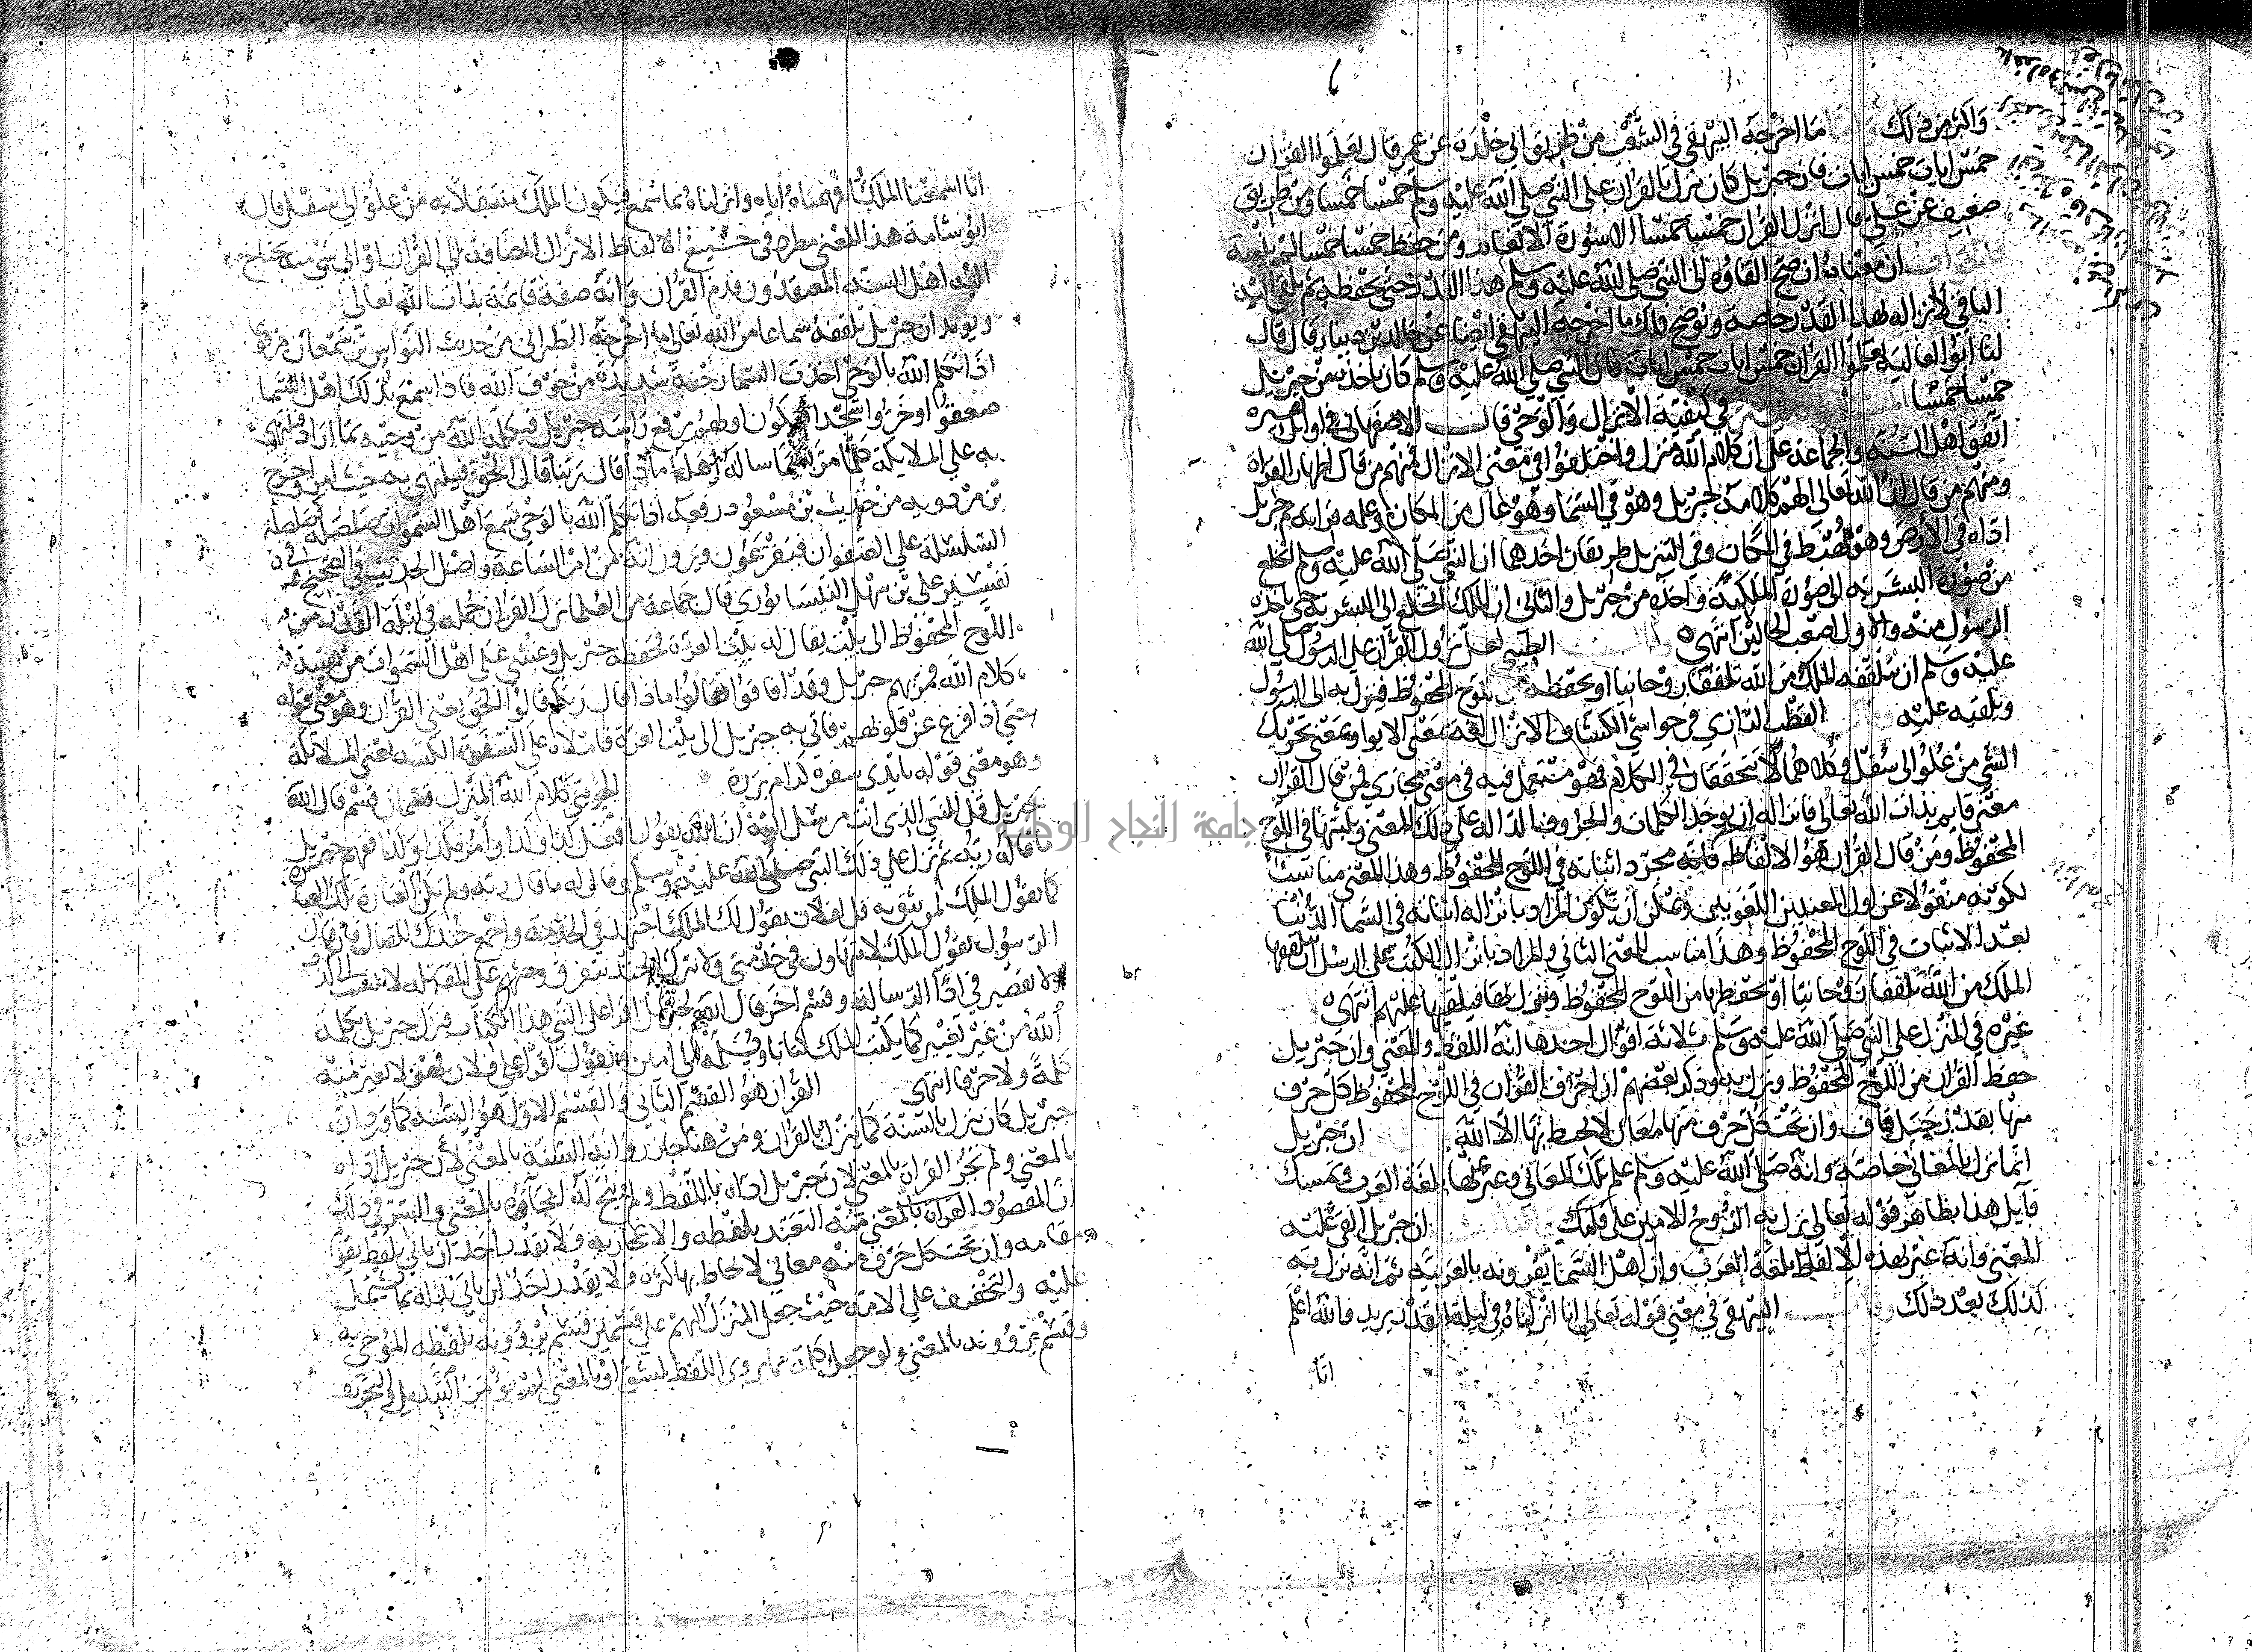 واكثر من ذلك ما اخرجه البيهقي في الشعب من طريق ابي خلدة عن عمر قال تعلموا القران
خمس ايات خمس ايات فان جبريل كان ينزل بالقران على النبي صلى الله عليه وسلم خمسا خمسا ومن طريق
ضعيف عن علي قال انزل القران خمسا خمسا الا سورة الانعام ومن حفظ خمسا خمسا لم ينسه
ان معناه ان صح القاوه الى النبي صلى الله عليه وسلم هذا القدر حتى يحفظه ثم يلقى اليه
الباقي لا انزاله بهذا القدر خاصة ويوضح ذلك ما اخرجه البيهقي ايضا عن خالد بن دينار قال قال
لنا ابو العالية تعلموا القران خمس ايات خمس ايات فان النبي صلى الله عليه وسلم كان ياخذه من جبريل
خمسا خمسا في كيفية الانزال والوحي قال الاصفهاني في اوائل تفسيره
اتفق اهل السنة والجماعة على ان كلام الله منزل واختلفوا في معنى الانزال فمنهم من قال اظهار القراة
ومنهم من قال ان الله تعالى الهم كلامه جبريل وهو في السما وهو عال من المكان وعلمه قراته ثم جبريل
اداه في الارض وهو يهبط في المكان وفي التنزيل طريقان احدهما ان النبي صلى الله عليه وسلم انخلع
من صورة البشرية الى صورة الملكية واخذه من جبريل والثاني ان الملك انخلع الى البشرية حتى ياخذه
الرسول منه والاول اصعب الحالين انتهى الطيبي لعل نزول القران على الرسول صلى الله
عليه وسلم ان يتلقفه الملك من الله تلقفا روحانيا او يحفظه من اللوح المحفوظ فينزل به الى الرسول
ويلقيه عليه القطب الرازي في حواشي الكشاف الانزال لغة بمعنى الايوا وبمعنى تحريك
الشي من علو الى سفل وكلاهما لا يتحققان في الكلام فهو مستعمل فيه في معنى مجازي فمن قال القران
معنى قايم بذات الله تعالى فانزاله ان يوجد الكلمات والحروف الدالة على ذلك المعنى ويثبتها في اللوح
المحفوظ ومن قال القران هو الالفاظ فانزاله مجرد اثباته في اللوح المحفوظ وهذا المعنى مناسب
لكونه منقولا عن اول المعنيين اللغويين ويمكن ان يكون المراد بانزاله اثباته في السما الدنيا
بعد الاثبات في اللوح المحفوظ وهذا مناسب للمعنى الثاني والمراد بانزال الكتب على الرسل ان يتلقفها
الملك من الله تلقفا روحانيا او يحفظها من اللوح المحفوظ وينزل بها فيلقيها عليهم انتهى
غيره في المنزل على النبي صلى الله عليه وسلم ثلاثة اقوال احدها انه اللفظ والمعنى وان جبريل
حفظ القران من اللوح المحفوظ ونزل به وذكر بعضهم ان احرف القران في اللوح المحفوظ كل حرف
منها بقدر جبل قاف وان تحت كل حرف منها معان لا يحيط بها الا الله ان جبريل
انما نزل بالمعاني خاصة وانه صلى الله عليه وسلم علم تلك المعاني وعبر عنها بلغة العرب وتمسك
قايل هذا بظاهر قوله تعالى نزل به الروح الامين على قلبك ان جبريل القى عليه
المعنى وانه عبر بهذه الالفاظ بلغة العرب وان اهل السما يقرونه بالعربية ثم انه نزل به
كذلك بعد ذلك البيهقي في معنى قوله تعالى انا انزلناه في ليلة القدر يريد والله اعلم
انا
انا اسمعنا الملك وافهمناه اياه وانزلناه بما سمع فيكون الملك منتقلا به من علو الى سفل قال
ابو شامة هذا المعنى مطرد في جميع الالفاظ الانزال المضافة الى القران او الى شي منه يحتاج
اليه اهل السنة المعتقدون قدم القران وانه صفة قائمة بذات الله تعالى
ويويد ان جبريل تلقفه سماعا من الله تعالى ما اخرجه الطبراني من حديث النواس بن سمعان مرفوعا
اذا تكلم الله بالوحي اخذت السما رجفة شديدة من خوف الله فاذا سمع بذلك اهل السما
صعقوا وخروا سجدا فيكون اولهم يرفع راسه جبريل فيكلمه الله من وحيه بما اراد فينتهي
به على الملائكة كلما مر بسما ساله اهلها ماذا قال ربنا قال الحق فينتهي به حيث امر واخرج
بن مردويه من حديث بن مسعود رفعه اذا تكلم الله بالوحي سمع اهل السموات صلصلة كصلصلة
السلسلة على الصفوان فيفزعون ويرون انه من امر الساعة واصل الحديث في الصحيح وفي
تفسير علي بن سهل النيسابوري قال جماعة من العلما نزل القران جملة في ليلة القدر من
اللوح المحفوظ الى بيت يقال له بيت العزة فحفظه جبريل وغشي على اهل السموات من هيبة
كلام الله فمر بهم جبريل وقد افاقوا فقالوا ماذا قال ربكم قالوا الحق يعني القران وهو معنى قوله
حتى اذا فزع عن قلوبهم فاتى به جبريل الى بيت العزة فاملاه على السفرة الكتبة يعني الملائكة
وهو معنى قوله بايدي سفرة كرام بررة الجويني كلام الله المنزل قسمان قسم قال الله
لجبريل قل للنبي الذي انت مرسل اليه ان الله يقول افعل كذا وكذا وامر بكذا وكذا ففهم جبريل
ما قاله ربه ثم نزل على ذلك النبي صلى الله عليه وسلم وقال له ما قال ربه ولم تكن العبارة تلك العبارة
كما يقول الملك لمن يثق به قل لفلان يقول لك الملك اجتهد في الخدمة واجمع جندك للقتال فان قال
الرسول يقول الملك لا تتهاون في خدمتي ولا تترك الجند يتفرق وحثهم على المقاتلة لا ينسب الى كذب
ولا تقصير في ادا الرسالة وقسم اخر قال الله لجبريل اقرا على النبي هذا الكتاب فنزل جبريل بكلمة
الله من غير تغيير كما يكتب الملك كتابا ويسلمه الى امين ويقول اقراه على فلان فهو لا يغير منه
كلمة ولا حرفا انتهى القران هو القسم الثاني والقسم الاول هو السنة كما ورد ان
جبريل كان ينزل بالسنة كما ينزل بالقران ومن هنا جاز رواية السنة بالمعنى لان جبريل اداه
بالمعنى ولم يجز القراة بالمعنى لان جبريل اداه باللفظ ولم يبح له ايحاؤه بالمعنى والسر في ذلك
ان المقصود القراة بالمعنى منه التعبد بلفظه والاعجاز به ولا يقدر احد ان ياتي بلفظ يقوم
مقامه وان تحت كل حرف منه معاني لا يحاط بها كثرة ولا يقدر احد ان ياتي بدله بما يشتمل
عليه والتخفيف على الامة حيث جعل المنزل اليهم على قسمين قسم يروونه بلفظه الموحى به
وقسم يروونه بالمعنى ولو جعل كله مما يروى باللفظ لشق او بالمعنى لم يومن التبديل والتحريف